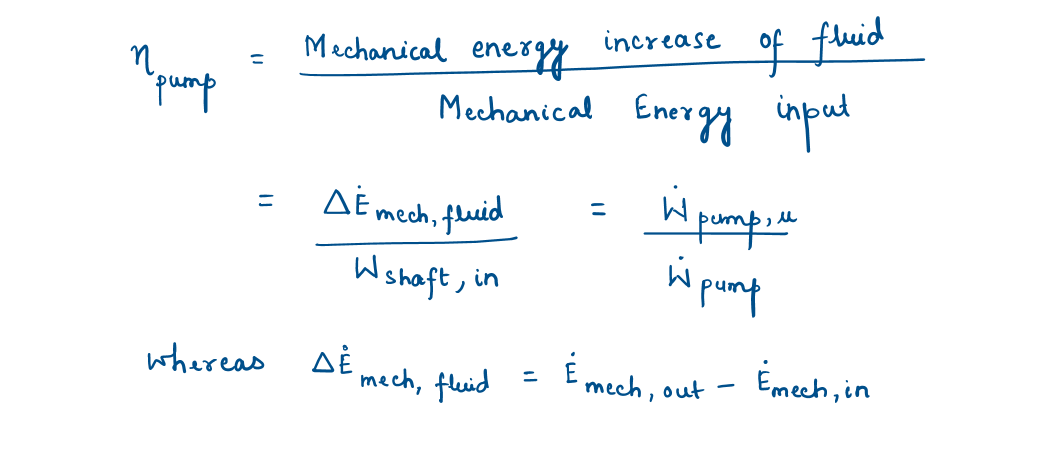 η pump = Mechanical energy increase of fluid
Mechanical Energy input
= ΔĖ mech, fluid / W shaft, in = Ẇ pump, u / Ẇ pump
whereas ΔĖ mech, fluid = Ė mech, out - Ė mech, in